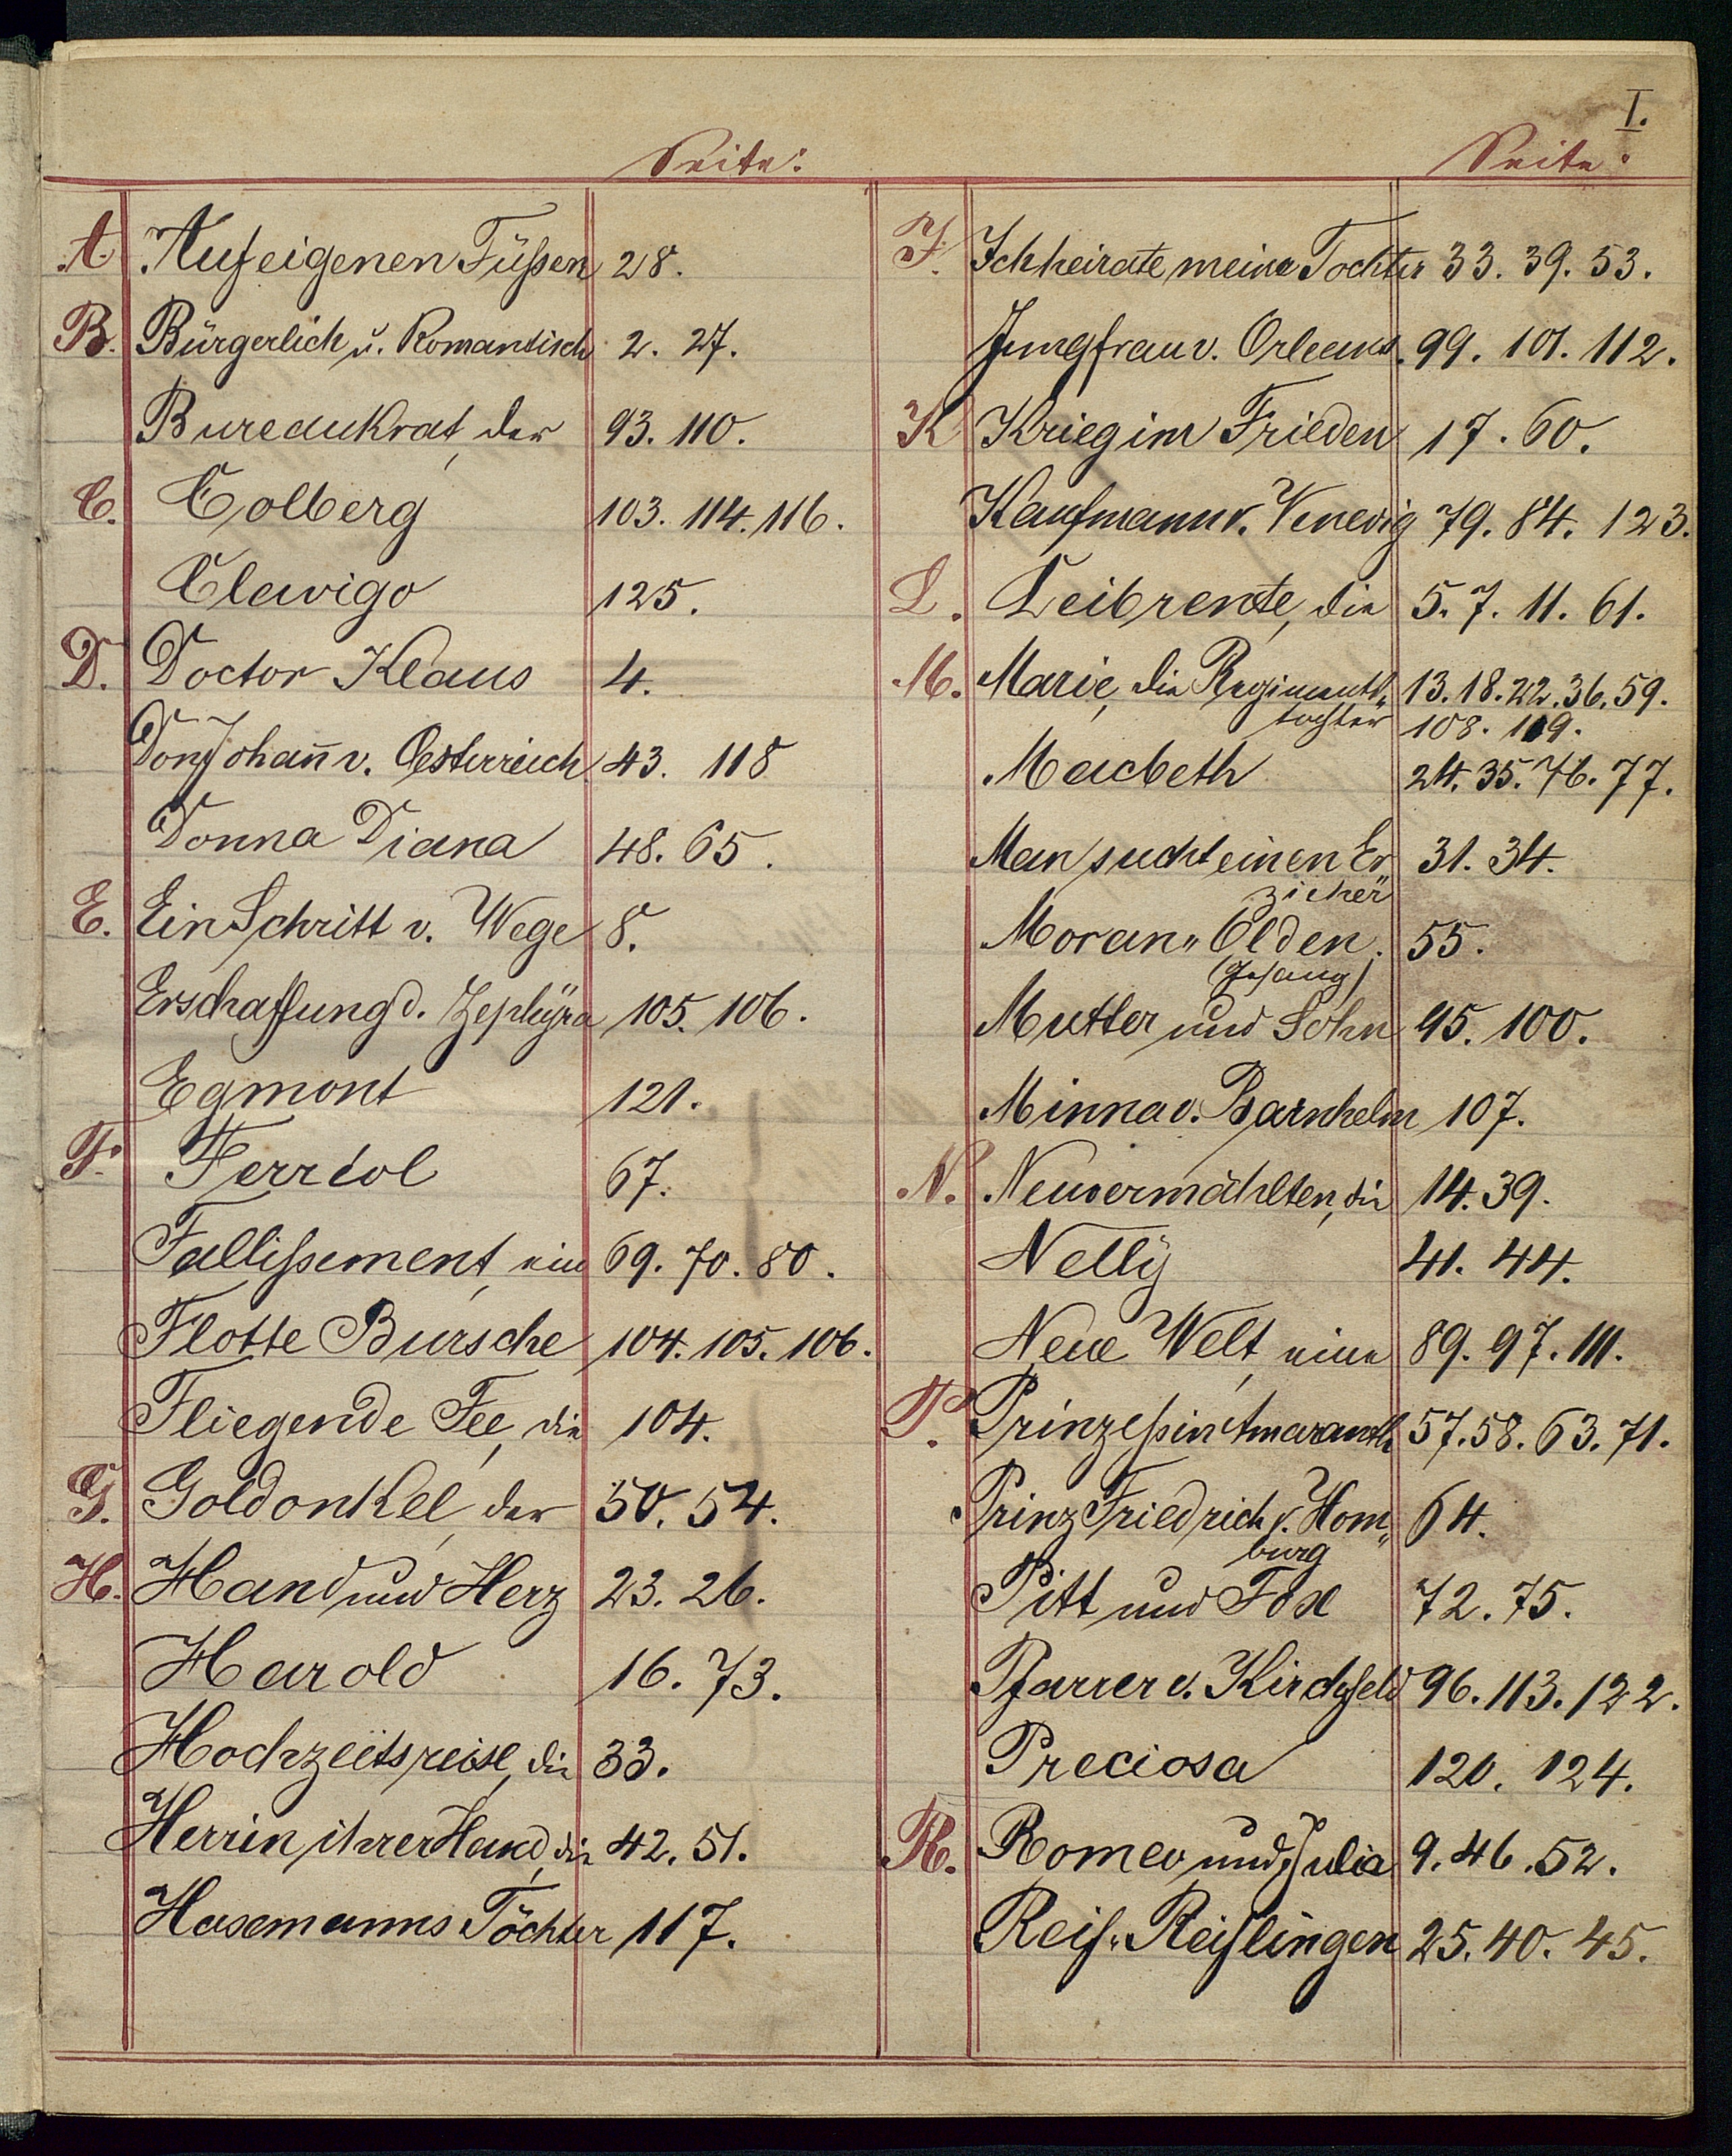 I.
Seite:
A. Auf eigenen Füßen 28.
B. Bürgerlich u. Romantisch 2. 27.
Bureaukrat, der 93. 110.
C. Colberg 103. 114. 116.
Clavigo 125.
D. Doctor Klaus 4.
Don Johañ v. Oesterreich 43. 118
Donna Diana 48. 65.
E. Ein Schritt v. Wege 8.
Erschaffung d. Zephÿra 105. 106.
Egmont 121.
F. Ferréol 67.
Fallißement, ein 69. 70. 80.
Flotte Bursche 104. 105. 106.
Fliegende Fee, die 104.
G. Goldonkel, der 50. 54.
H. Hand und Herz 23. 26.
Harold 16. 73.
Hochzeitsreise, die 33.
Herrin ihrer Hand, die 42. 51.
Hasemanns Töchter 117.
Seite:
I. Ich heirate meine Tochter 33. 39. 53.
Jungfrau v. Orleans. 99. 101. 112.
K Krieg im Frieden 17. 60.
Kaufmann v. Venedig 79. 84. 123.
L. Leibrente, die 5. 7. 11. 61.
M. Marie, die Regiments„ 13. 18. 22. 36. 59.
tochter 108. 119.
Macbeth 24. 35. 76. 77.
Man sucht einen Er„ 31. 34.
zieher
Moran„Olden. 55.
(Gesang)
Mutter und Sohn 95. 100.
Minna v. Barnhelm 107.
N. Neuvermählten, die 14. 39.
Nellÿ 41. 44.
Neue Welt, eine 89. 97. 111.
P. Prinzeßin Amaranth 57. 58. 63. 71.
Prinz Friedrich v. Hom„ 64.
burg
Pitt und Fox 72. 75.
Pfarrer v. Kirchfeld 96. 113. 122.
Preciosa 120. 124.
R. Romeo und Julia 9. 46. 52.
Reif„Reiflingen 25. 40. 45.